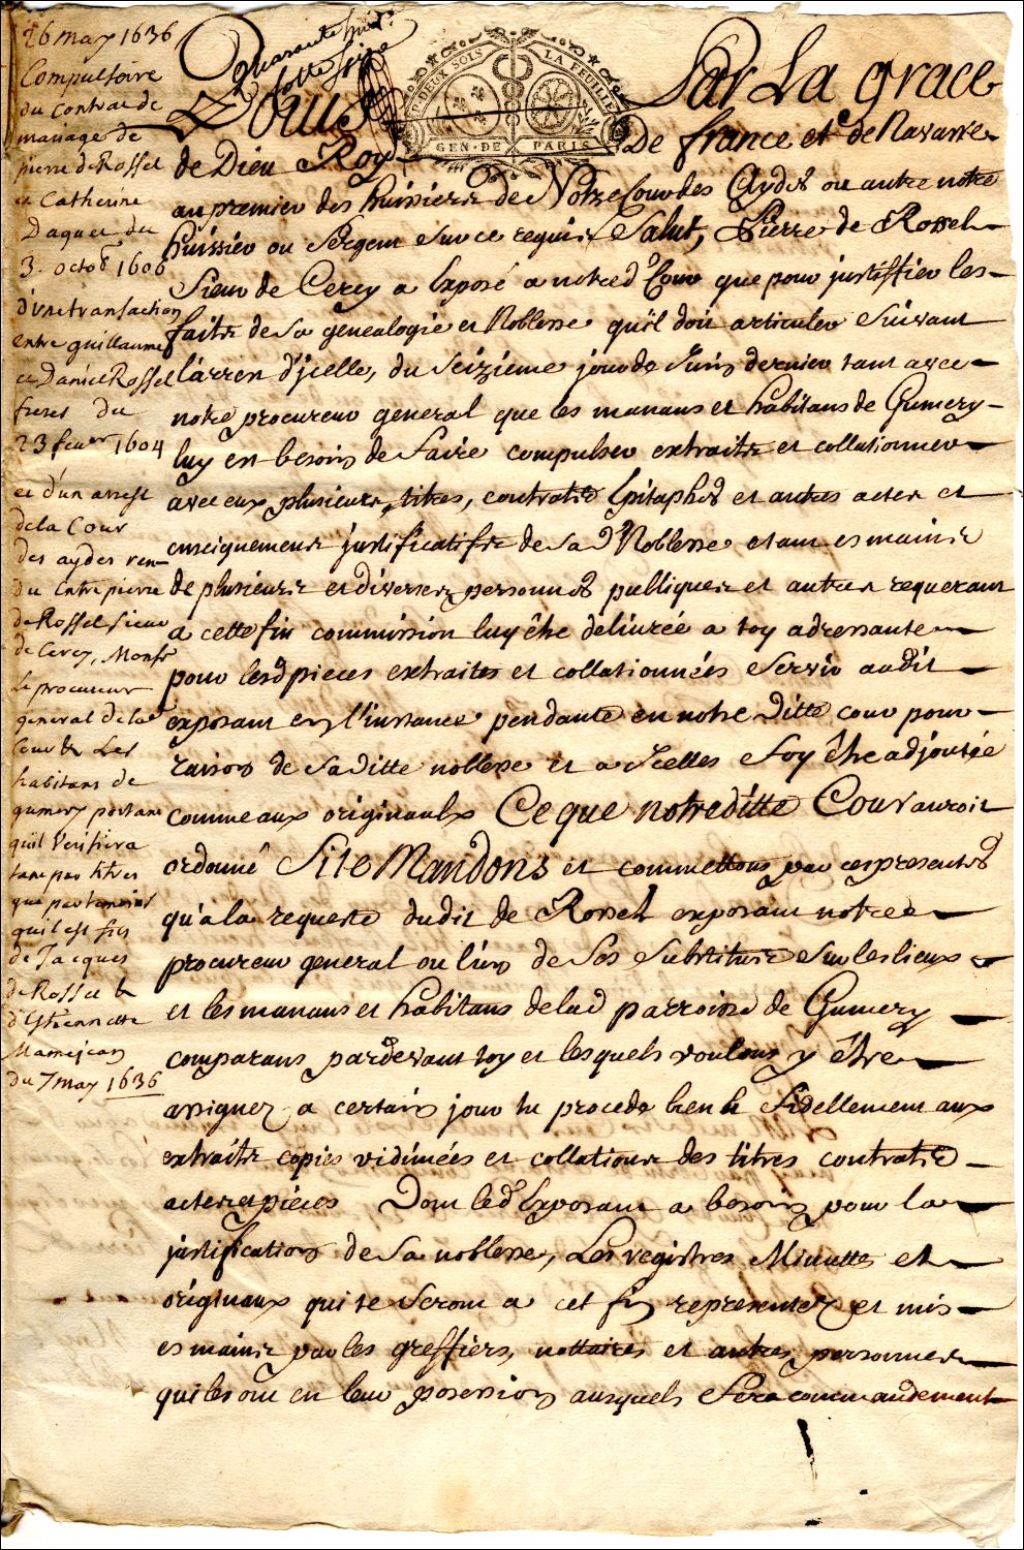 26 may 1636
Compulsoire
du Contrat de
mariage de
pierre de Rossel
et Catherine
Daquet du
3. octob 1606
d'une transaction
entre guillaume
et Daniel Rossel
freres du
23 fevr 1604
et d'un arrest
de la Cour
des aydes ren-
du entre pierre
de Rossel sieur
de Cercy, Monsr
Le procureur
general de la de
Cour & Les
habitans de
gumery portant
quil Verifiera
tant par titres
que
quil est fils
de Jacques
de Rossel &
d'Estiennette
Mamejean
du 7 may 1636
quarante huit
Louis
DEUX SOLS LA FEUILLE
GEN. DE PARIS
Par La grace
de Dieu Roy De france et de Navarre
au premier des huissiers de Notre Cour des Aydes ou autre notre
huissier ou sergent sur ce requis Salut, Pierre de Rossel
Sieur de Cercy a Exposé a notred Cour que pour justiffier les
faits de sa genealogie et Noblesse qu'il doit articuler suivant
l'arrest d'jcelle, du seizieme jour de Juin dernier tant avec
notre procureur general que les manans et habitans de Gumery
luy est besoin de faire compulser extraits et collationner
avec eux plusieurs titres, contrats Epitaphes et autres actes et
enseignemens justificatifs de sad Noblesse estant es mains
de plusieurs et diverses personnes publiques et autres requerant
a cette fin commission luy être delivrée a toy adressante
pour lesd pieces extraites et collationnées servir audit
exposant en l'instance pendante en notre ditte cour pour
raison de sa ditte noblesse et a Jcelles foy être adjoutée
comme aux originaulx Ce que notre ditte Cour auroit
ordonné Si te Mandons et commettons par ces presentes
qu'a la requeste dudit de Rossel exposant notre
procureur general ou l'un de ses substituts sur les lieux
et les manans et habitans de lad parroisse de Gumery
comparans pardevant toy et lesquels voulons y être
assignez a certain jour tu procede bien & fidellement aux
extraits copies vidimées et collations des titres contrats
actes et pieces Dont led Exposant a besoin pour la
justification de sa noblesse, Les registres Minuttes et
originaux qui te seront a cet fin representez et mis
es mains par les greffiers, nottaires et autres personnes
qui les ont en leur possession ausquels sera commandement